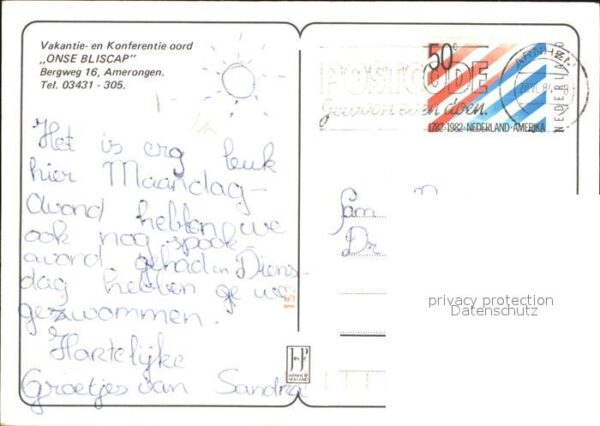 Vakantie- en Konferentie oord
„ONSE BLISCAP"
Bergweg 16, Amerongen.
Tel. 03431 - 305.
50c
NEDERLAND
1782•1982•NEDERLAND-AMERIKA
ARNHEM
POSTCODE
gewoon even doen.
Het is erg leuk
hier Maandag-
avond hebben we
ook nog spook
avond gehad en Diens-
dag hebben ge we
gezwommen.
Hartelijke
Groetjes van Sandra
Fam
privacy protection
Datenschutz